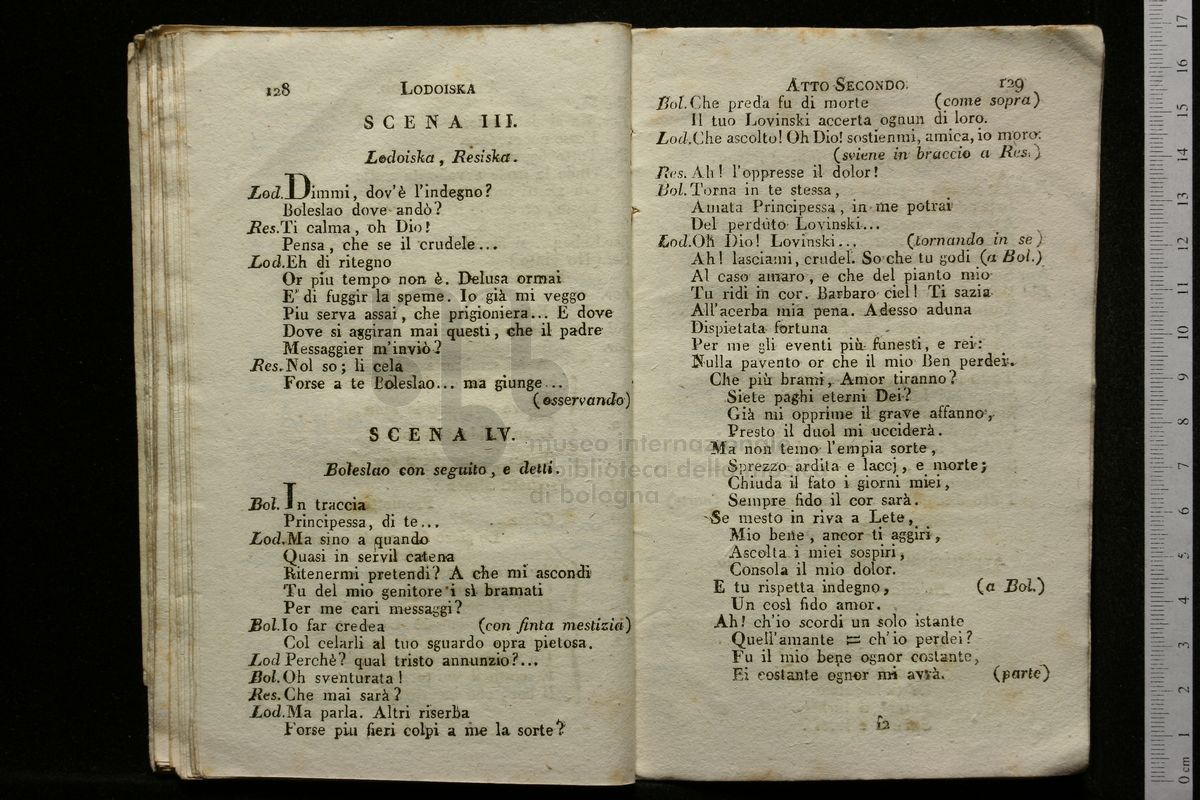 128 LODOISKA
SCENA III.
Lodoiska, Resiska.
Lod. Dimmi, dov'è l'indegno?
Boleslao dove andò?
Res. Ti calma, oh Dio!
Pensa, che se il crudele...
Lod. Eh di ritegno
Or piu tempo non è. Delusa ormai
E' di fuggir la speme. Io già mi veggo
Piu serva assai, che prigioniera... E dove
Dove si aggiran mai questi, che il padre
Messaggier m'inviò?
Res. Nol so; li cela
Forse a te Boleslao... ma giunge...
(osservando)
SCENA IV.
Boleslao con seguito, e detti.
Bol. In traccia
Principessa, di te...
Lod. Ma sino a quando
Quasi in servil catena
Ritenermi pretendi? A che mi ascondi
Tu del mio genitore i sì bramati
Per me cari messaggi?
Bol. Io far credea (con finta mestizia)
Col celarli al tuo sguardo opra pietosa.
Lod Perchè? qual tristo annunzio?...
Bol. Oh sventurata!
Res. Che mai sarà?
Lod. Ma parla. Altri riserba
Forse piu fieri colpi a me la sorte?
ATTO SECONDO. 129
Bol. Che preda fu di morte (come sopra)
Il tuo Lovinski accerta ognun di loro.
Lod. Che ascolto! Oh Dio! sostienmi, amica, io moro:
(sviene in braccio a Res.)
Res. Ah! l'oppresse il dolor!
Bol. Torna in te stessa,
Amata Principessa, in me potrai
Del perduto Lovinski...
Lod. Oh Dio! Lovinski... (tornando in se)
Ah! lasciami, crudel. So che tu godi (a Bol.)
Al caso amaro, e che del pianto mio
Tu ridi in cor. Barbaro ciel! Ti sazia
All'acerba mia pena. Adesso aduna
Dispietata fortuna
Per me gli eventi più funesti, e rei:
Nulla pavento or che il mio Ben perdei.
Che più brami, Amor tiranno?
Siete paghi eterni Dei?
Già mi opprime il grave affanno,
Presto il duol mi ucciderà.
Ma non temo l'empia sorte,
Sprezzo ardita e laccj, e morte;
Chiuda il fato i giorni miei,
Sempre fido il cor sarà.
Se mesto in riva a Lete,
Mio bene, ancor ti aggiri,
Ascolta i miei sospiri,
Consola il mio dolor.
E tu rispetta indegno, (a Bol.)
Un così fido amor.
Ah! ch'io scordi un solo istante
Quell'amante = ch'io perdei?
Fu il mio bene ognor costante,
Ei costante ognor mi avrà. (parte)
f2
museo internazionale
e biblioteca della musica
di bologna
0 cm 1 2 3 4 5 6 7 8 9 10 11 12 13 14 15 16 17